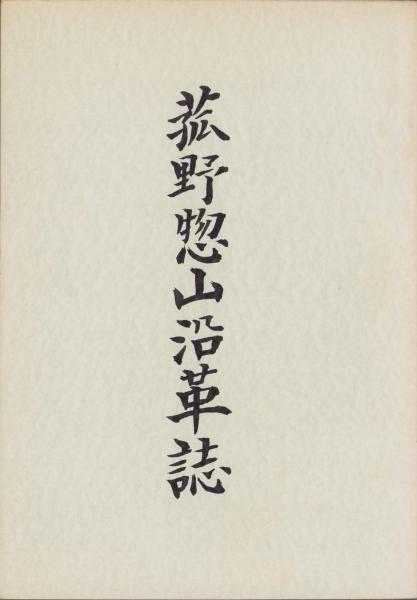 菰野惣山沿革誌